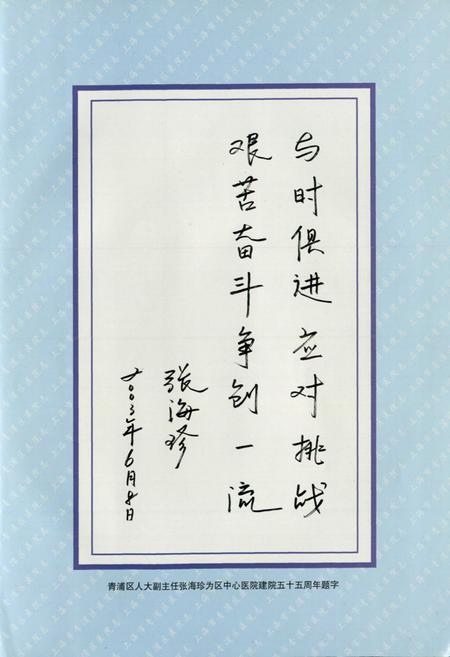 与时俱进应对挑战
艰苦奋斗争创一流
张海珍
二00三年6月8日
青浦区人大副主任张海珍为区中心医院建院五十五周年题字